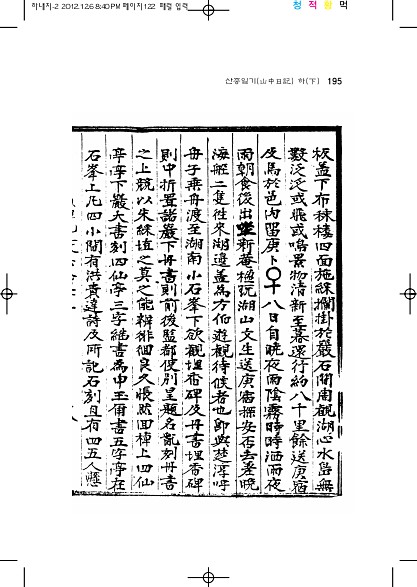 하네지-2 2012.12.6 8:40 PM 페이지122 페컴 입력
청 적 황 먹
산중일기(山中日記) 하(下) 195
板盖下布秣樓四面施綵欄掛於巖石間周觀湖心水島無
數泛泛或飛或鳴景物淸新至暮還行約八十里餘送庚宿
反馬於邑內留庚卜○十八日自晩夜雨陰霧時時洒雨夜
雨朝食後出 新菴極玩湖山文生送庚宿探安否去差晩
海艇二隻往來湖邊盖爲方伯遊觀待候者也卽與楚淳呼
冊子乘舟渡至湖南小石峯下欲觀埋香碑及丹書埋香碑
則中折置諸巖下丹書則前後監都使別星題名亂刻丹書
之上競以朱綵塡之眞之能辨徘徊良久悵然回棹上四仙
亭亭下巖大書刻四仙亭三字細書爲申玉甭書五字亭在
石峯上凡四小間有洪貴達詩及所記石刻且有四五人懸